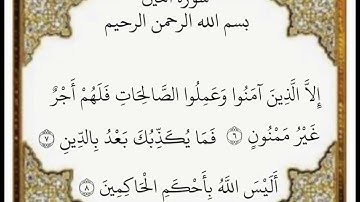 سورة التين
بسم الله الرحمن الرحيم
إِلاَّ الَّذِينَ آمَنُوا وَعَمِلُوا الصَّالِحَاتِ فَلَهُمْ أَجْرٌ
غَيْرُ مَمْنُونٍ ٦ فَمَا يُكَذِّبُكَ بَعْدُ بِالدِّينِ ٧
أَلَيْسَ اللَّهُ بِأَحْكَمِ الْحَاكِمِينَ ٨